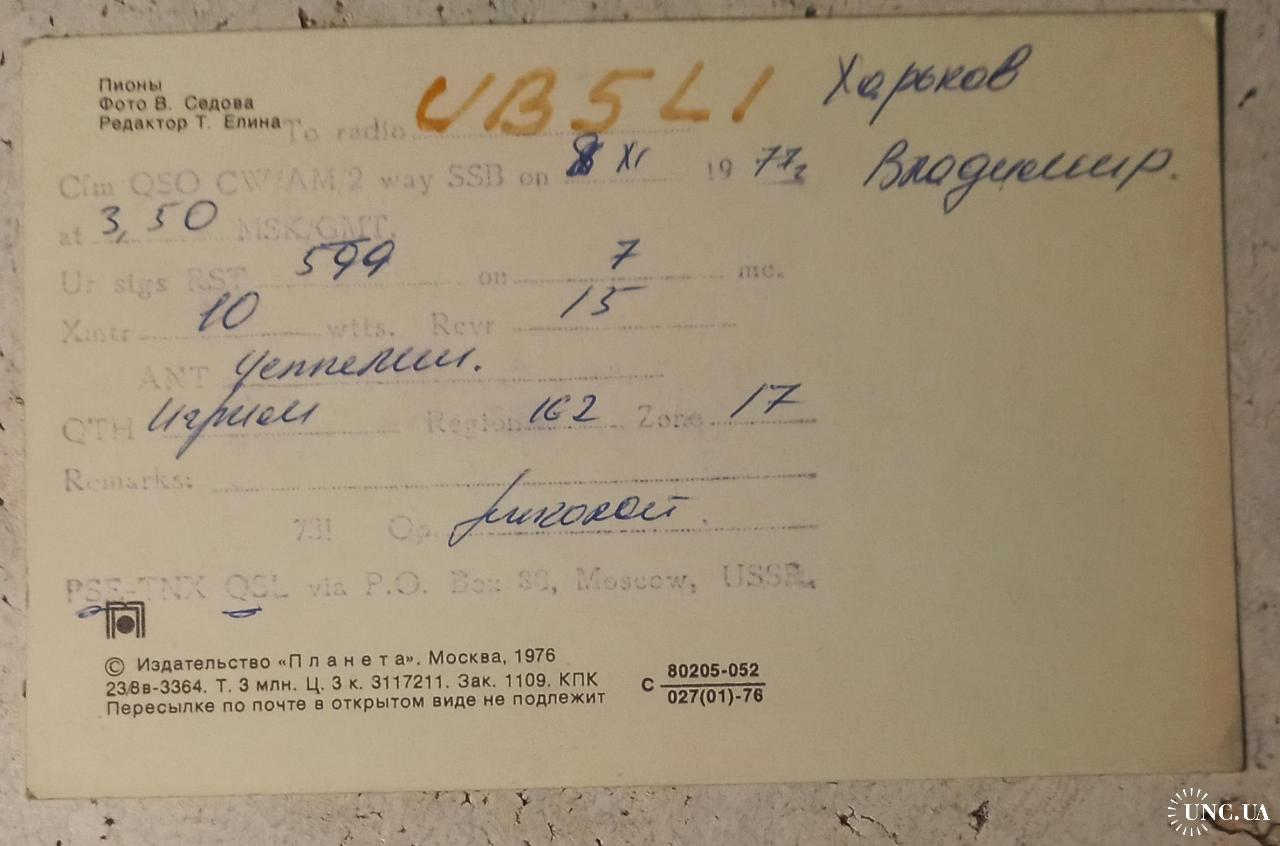 Пионы
Фото В. Седова
Редактор Т. Елина
To radio UB5LI
Харьков
Cfm QSO CW/AM/2 way SSB on 8 XI 1977г
Владимир.
at 3,50 MSK/GMT.
Ur sigs RST 599 on 7 mc.
Xmtr 10 wtts. Rcvr 15
ANT Цеппелин.
QTH Игрим Region 162 Zone 17
Remarks:
73! Op.
PSE-TNX QSL via P.O. Box 88, Moscow, USSR.
© Издательство «Планета». Москва, 1976
23/8в-3364. Т. 3 млн. Ц. 3 к. 3117211. Зак. 1109. КПК
Пересылке по почте в открытом виде не подлежит
С 80205-052
027(01)-76
UNC.UA